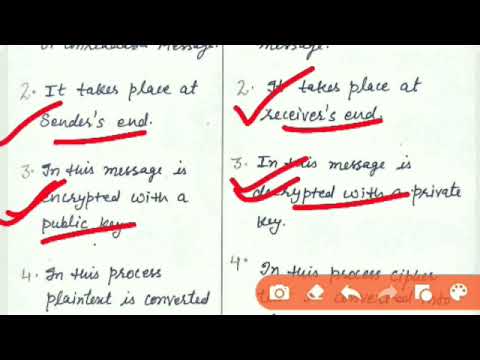 message.
message.
2. It takes place at
Sender's end.
3. In this message is
encrypted with a
public key
4. In this process
plaintext is converted
2. It takes place at
receiver's end.
3. In this message is
decrypted with a private
key.
4. In this process cipher
converted into